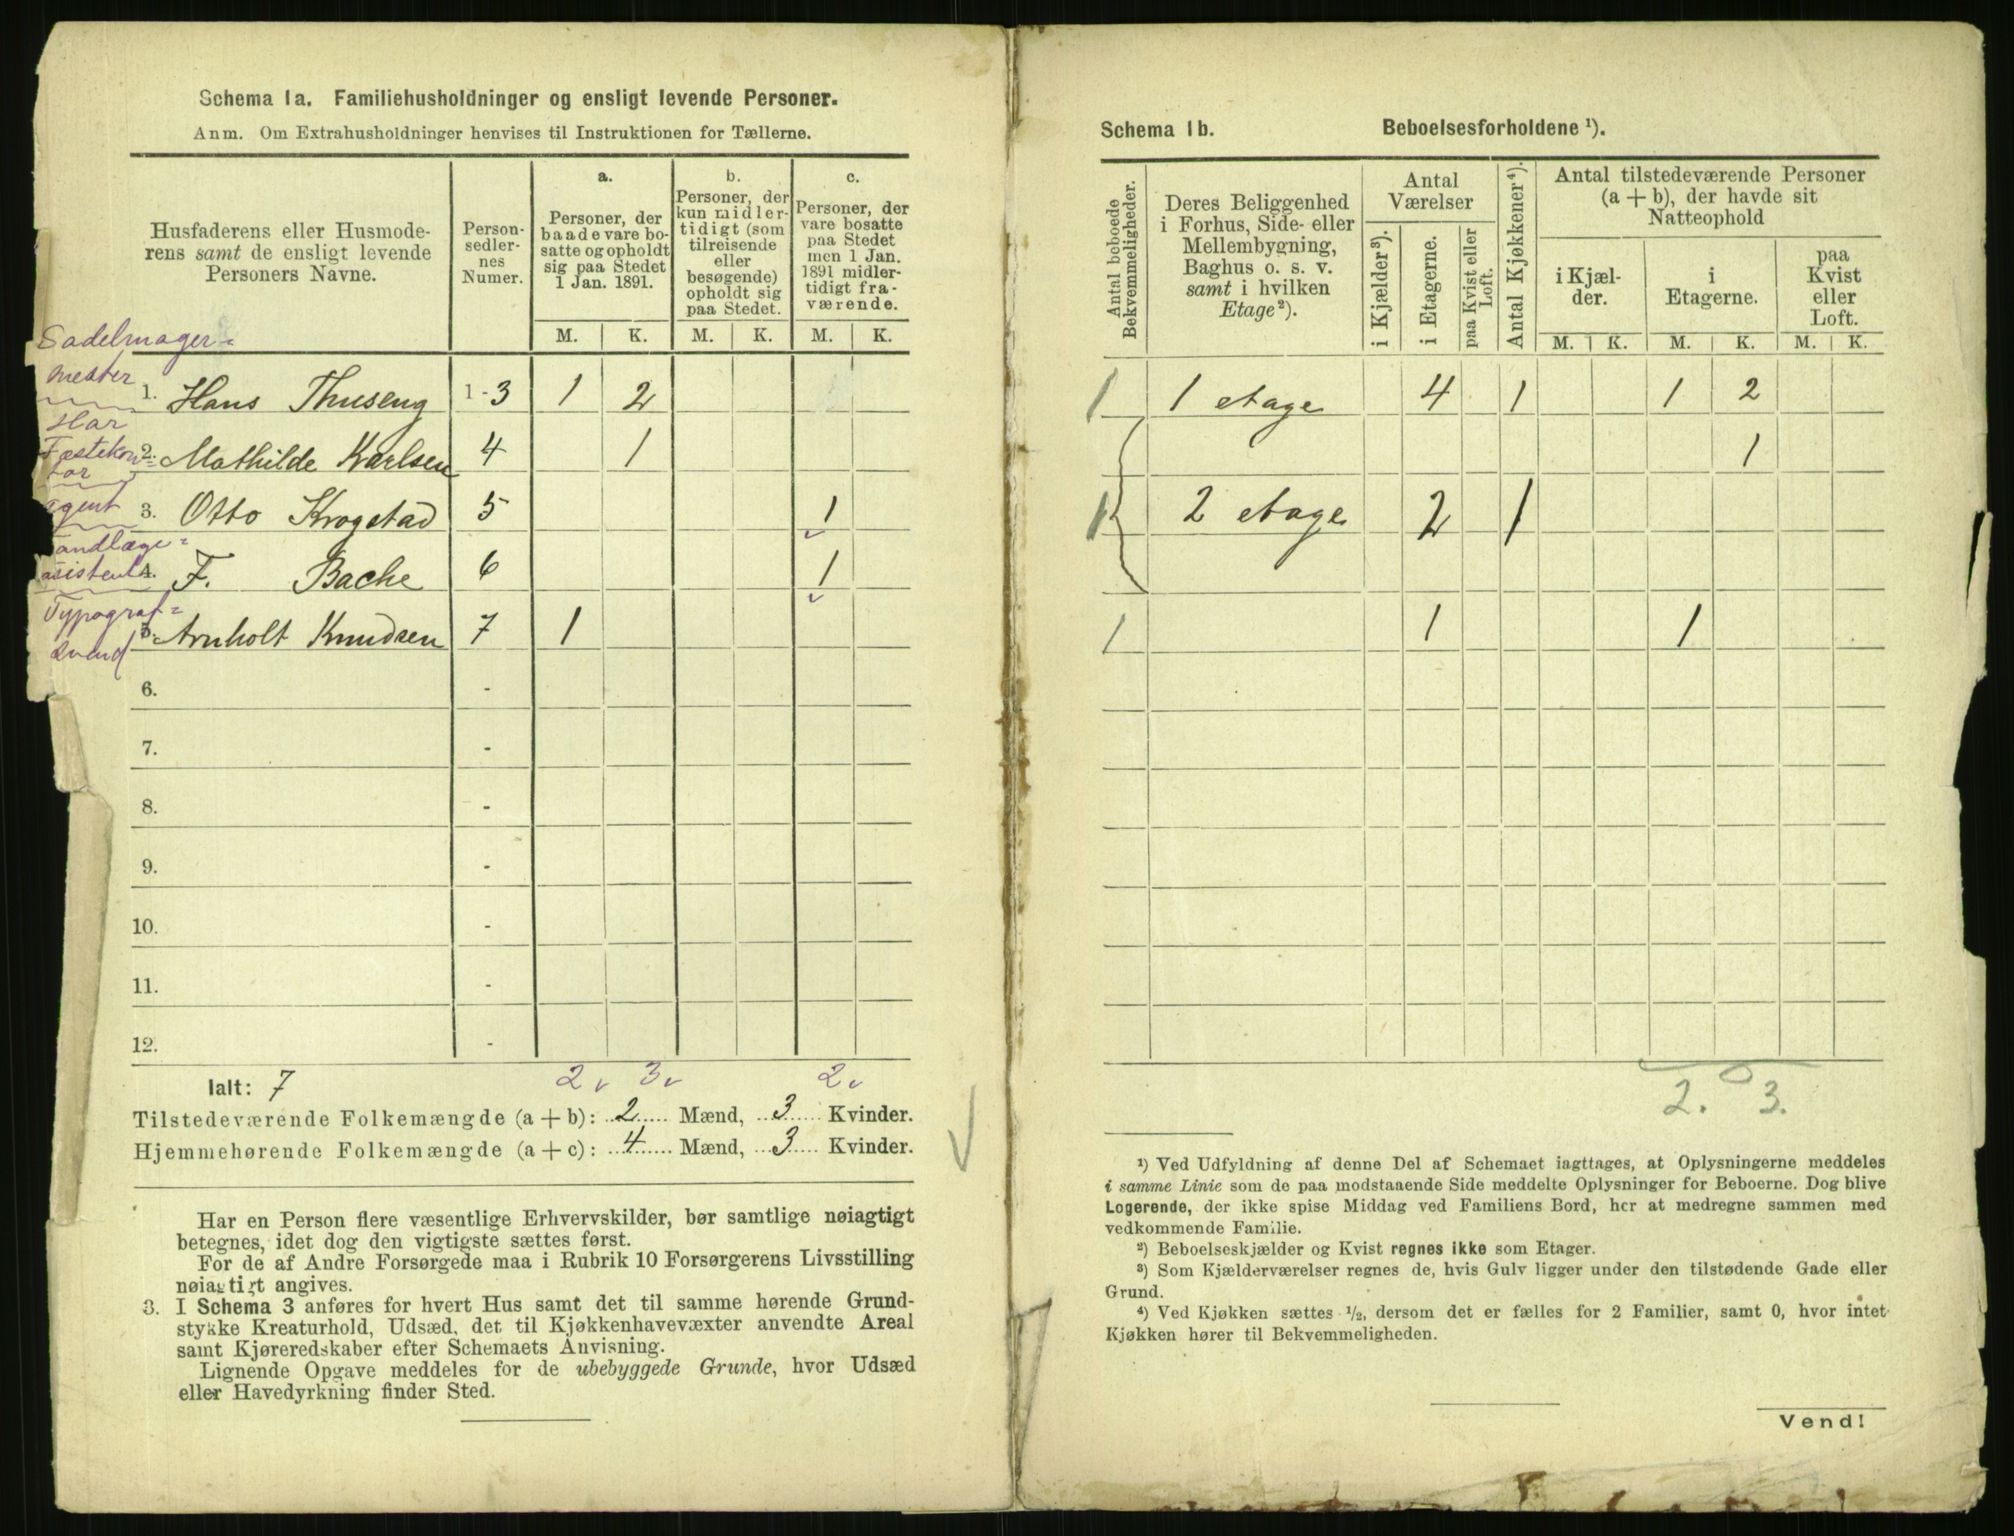 Schema 1a. Familiehusholdninger og ensligt levende Personer.
Anm. Om Extrahusholdninger henvises til Instruktionen for Tællerne.
Husfaderens eller Husmode-
rens samt de ensligt levende
Personers Navne.
Person-
sedler-
nes
Numer.
a.
Personer, der
baade vare bo-
satte og opholdt
sig paa Stedet
1 Jan. 1891.
b.
Personer, der
kun midler-
tidigt (som
tilreisende
eller
besøgende)
opholdt sig
paa Stedet.
c.
Personer, der
vare bosatte
paa Stedet
men 1 Jan.
1891 midler-
tidigt fra-
værende.
M. K. M. K. M. K.
Sadelmager=
mester
1. Hans Thuseng 1-3 1 2
Har
Fæstekon=
tor
2. Mathilde Karlsen 4 1
agent
3. Otto Krogstad 5 1
Tandlæge=
assistent
4. F. Bache 6 1
Typograf=
svend
5. Arnholt Knudsen 7 1
6. -
7. -
8. -
9. -
10. -
11. -
12. -
Ialt: 7 2 3 2
Tilstedeværende Folkemængde (a + b): 2 Mænd, 3 Kvinder.
Hjemmehørende Folkemængde (a + c): 4 Mænd, 3 Kvinder.
Har en Person flere væsentlige Erhvervskilder, bør samtlige nøiagtigt
betegnes, idet dog den vigtigste sættes først.
For de af Andre Forsørgede maa i Rubrik 10 Forsørgerens Livsstilling
nøiagtigt angives.
3. I Schema 3 anføres for hvert Hus samt det til samme hørende Grund-
stykke Kreaturhold, Udsæd, det til Kjøkkenhavevæxter anvendte Areal
samt Kjøreredskaber efter Schemaets Anvisning.
Lignende Opgave meddeles for de ubebyggede Grunde, hvor Udsæd
eller Havedyrkning finder Sted.
Schema 1b. Beboelsesforholdene ¹).
Antal beboede
Bekvemmeligheder.
Deres Beliggenhed
i Forhus, Side- eller
Mellembygning,
Baghus o. s. v.
samt i hvilken
Etage²).
Antal
Værelser
i Kjælder³).
i Etagerne.
paa Kvist eller
Loft.
Antal Kjøkkener⁴).
Antal tilstedeværende Personer
(a + b), der havde sit
Natteophold
i Kjæl-
der.
i
Etagerne.
paa
Kvist
eller
Loft.
M. K. M. K. M. K.
1 1 etage 4 1 1 2
1
1 2 etage 2 1
1 1 1
2. 3.
¹) Ved Udfyldning af denne Del af Schemaet iagttages, at Oplysningerne meddeles
i samme Linie som de paa modstaaende Side meddelte Oplysninger for Beboerne. Dog blive
Logerende, der ikke spise Middag ved Familiens Bord, her at medregne sammen med
vedkommende Familie.
²) Beboelseskjælder og Kvist regnes ikke som Etager.
³) Som Kjælderværelser regnes de, hvis Gulv ligger under den tilstødende Gade eller
Grund.
⁴) Ved Kjøkken sættes ½, dersom det er fælles for 2 Familier, samt 0, hvor intet
Kjøkken hører til Bekvemmeligheden.
Vend!